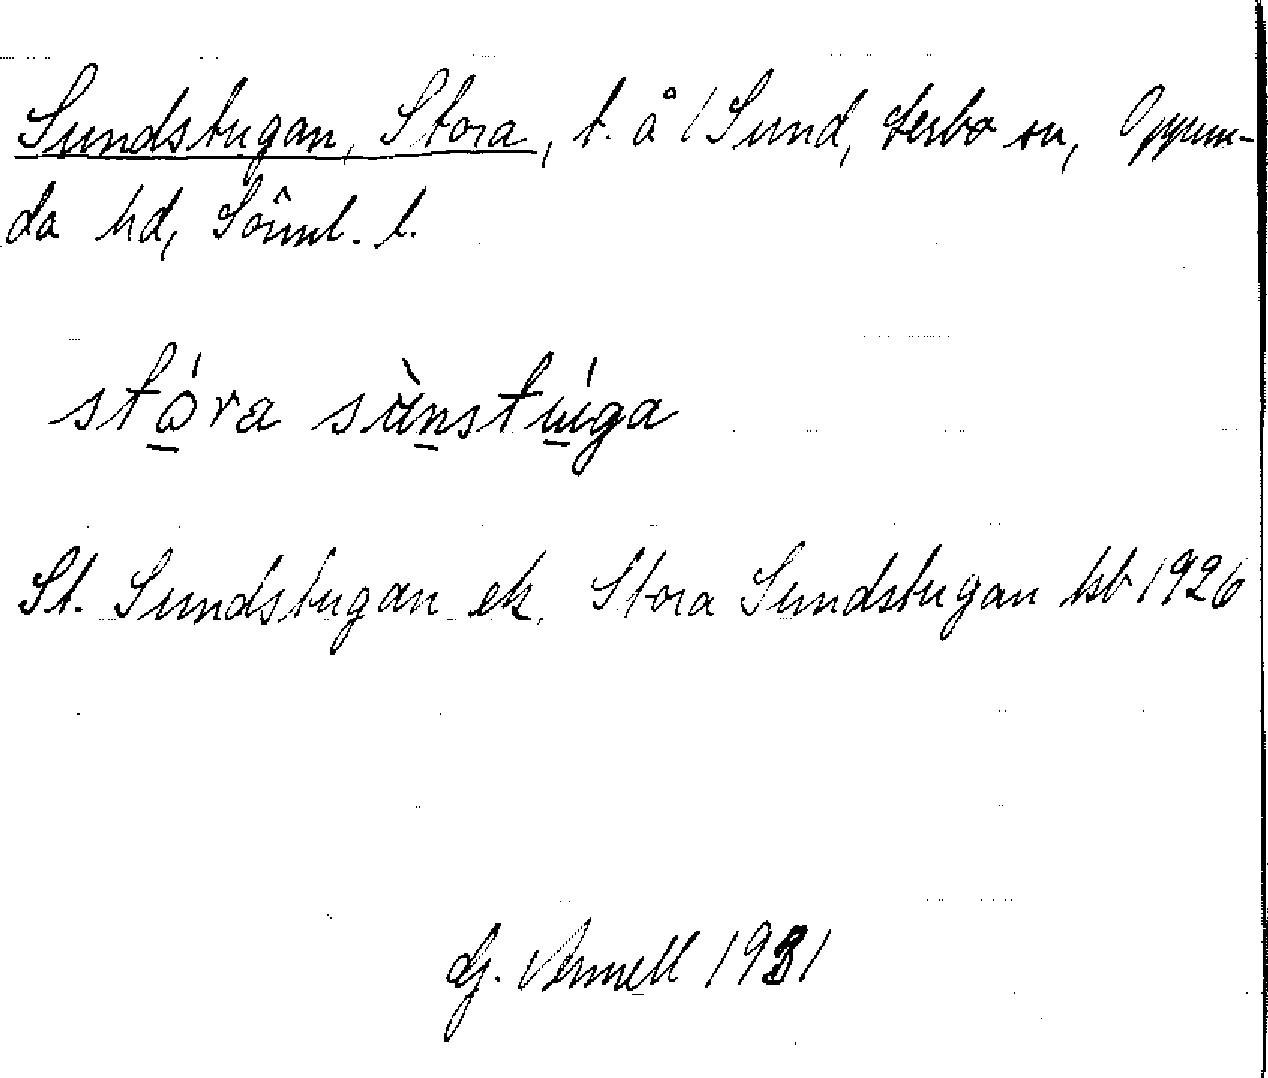 Sundstugan, Stora, t. å 1 Sund, Lerbo sn, Oppun-
da hd, Sörml. l.
stọ́ra sùnstúga
St. Sundstugan ek. Stora Sundstugan kb 1926
G. 1931